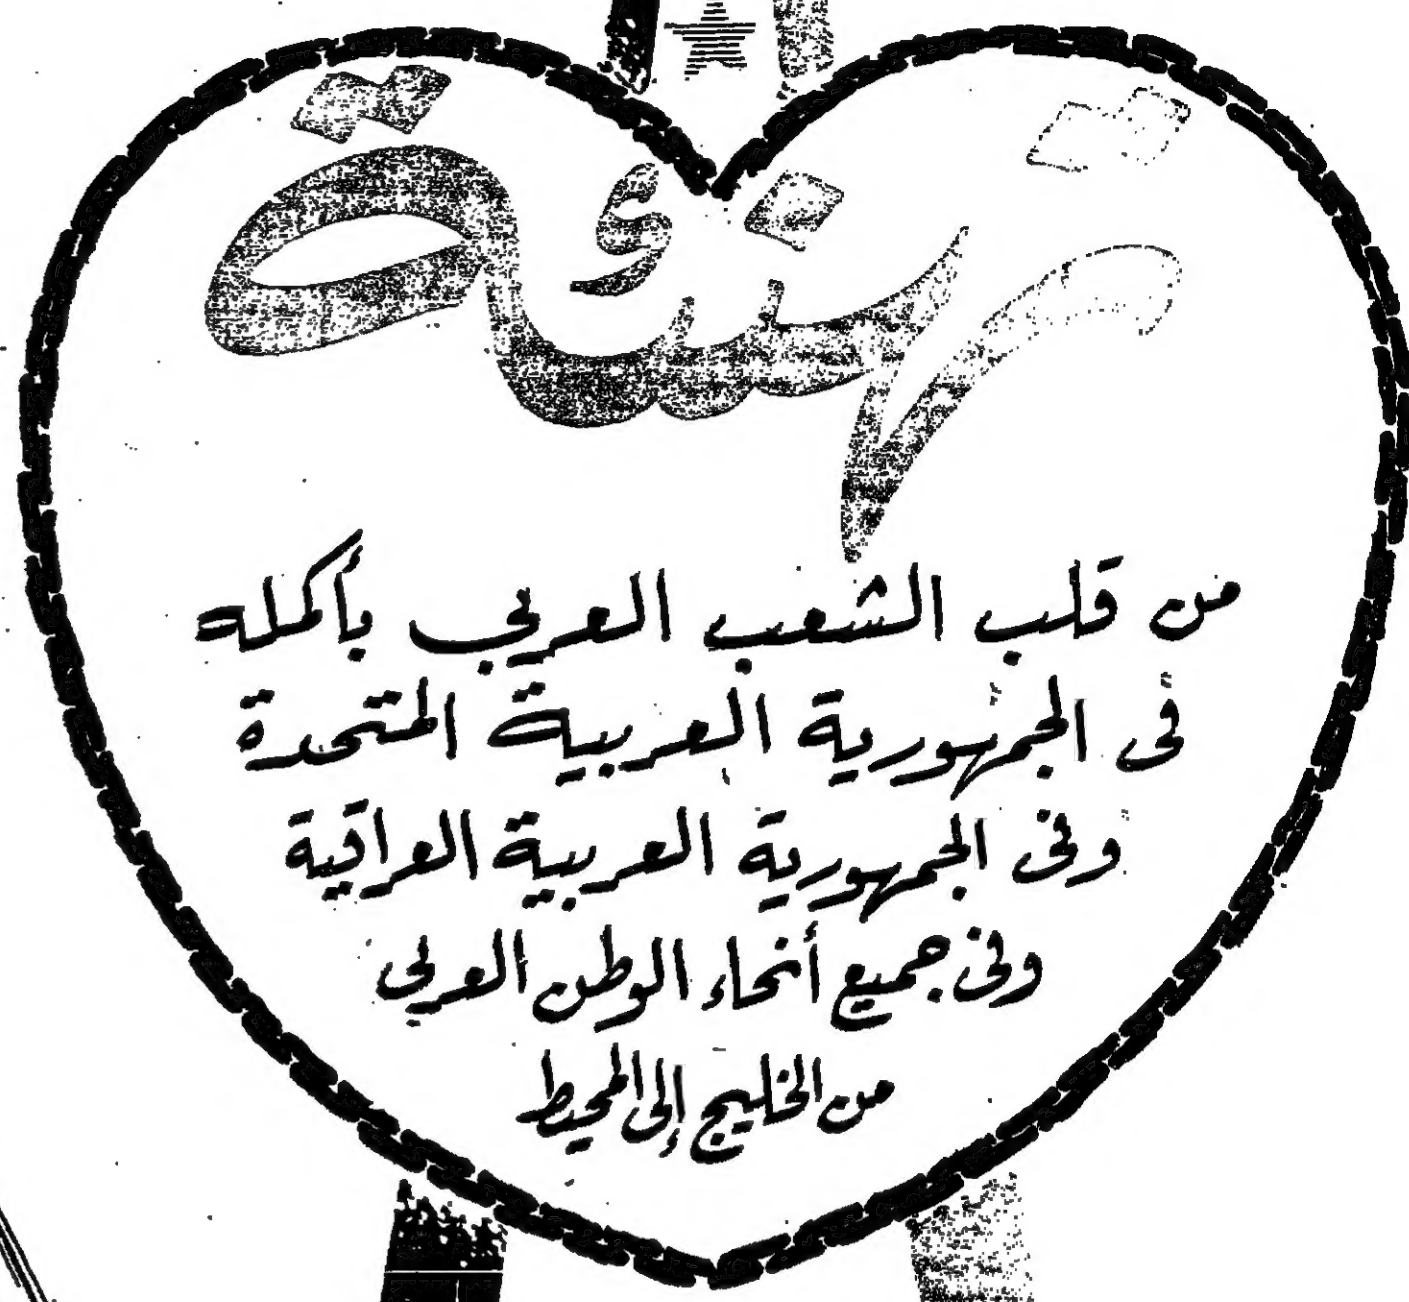 تهنئة
من قلب الشعب العربي بأكمله
فى الجمهورية العربية المتحدة
وفى الجمهورية العربية العراقية
وفى جميع أنحاء الوطن العربى
من الخليج إلى المحيط